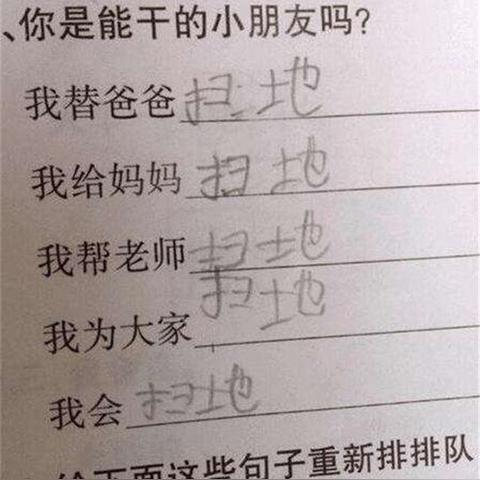 、你是能干的小朋友吗?
我替爸爸扫地
我给妈妈扫地
我帮老师扫地
我为大家扫地
我会扫地
给下面这些句子重新排排队